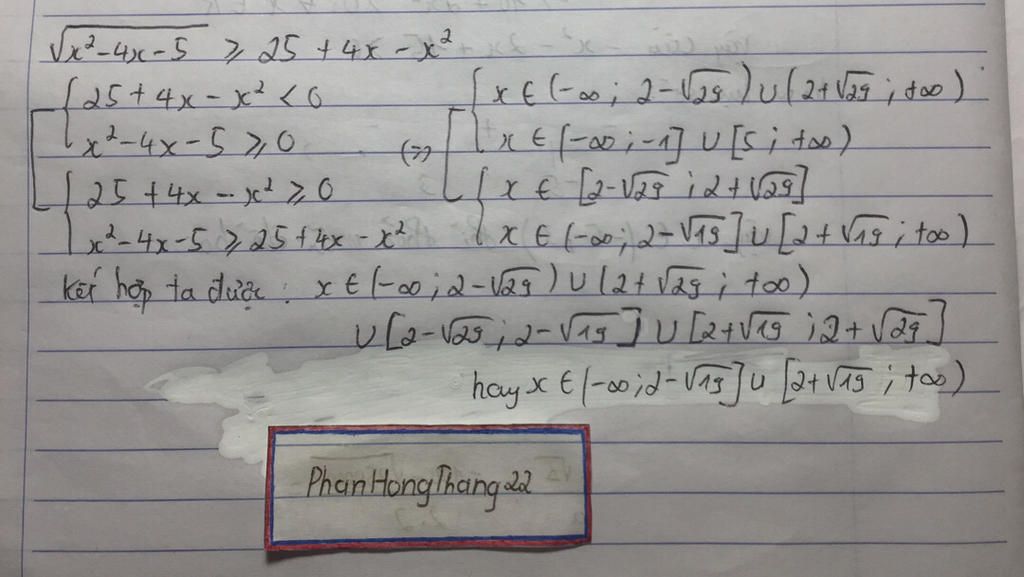 √(x²-4x-5) ≥ 25 + 4x - x²
[ { 25 + 4x - x² < 0 [ { x ∈ (-∞; 2-√29) ∪ (2+√29; +∞)
x² - 4x - 5 ≥ 0 (=> x ∈ [-∞; -1] ∪ [5; +∞)
{ 25 + 4x - x² ≥ 0 { x ∈ [2-√29; 2+√29]
x² - 4x - 5 ≥ 25 + 4x - x² x ∈ (-∞; 2-√19] ∪ [2+√19; +∞)
Kết hợp ta được: x ∈ (-∞; 2-√29) ∪ (2+√29; +∞)
∪ [2-√29; 2-√19] ∪ [2+√19; 2+√29]
hay x ∈ (-∞; 2-√19] ∪ [2+√19; +∞)
PhanHongThang22